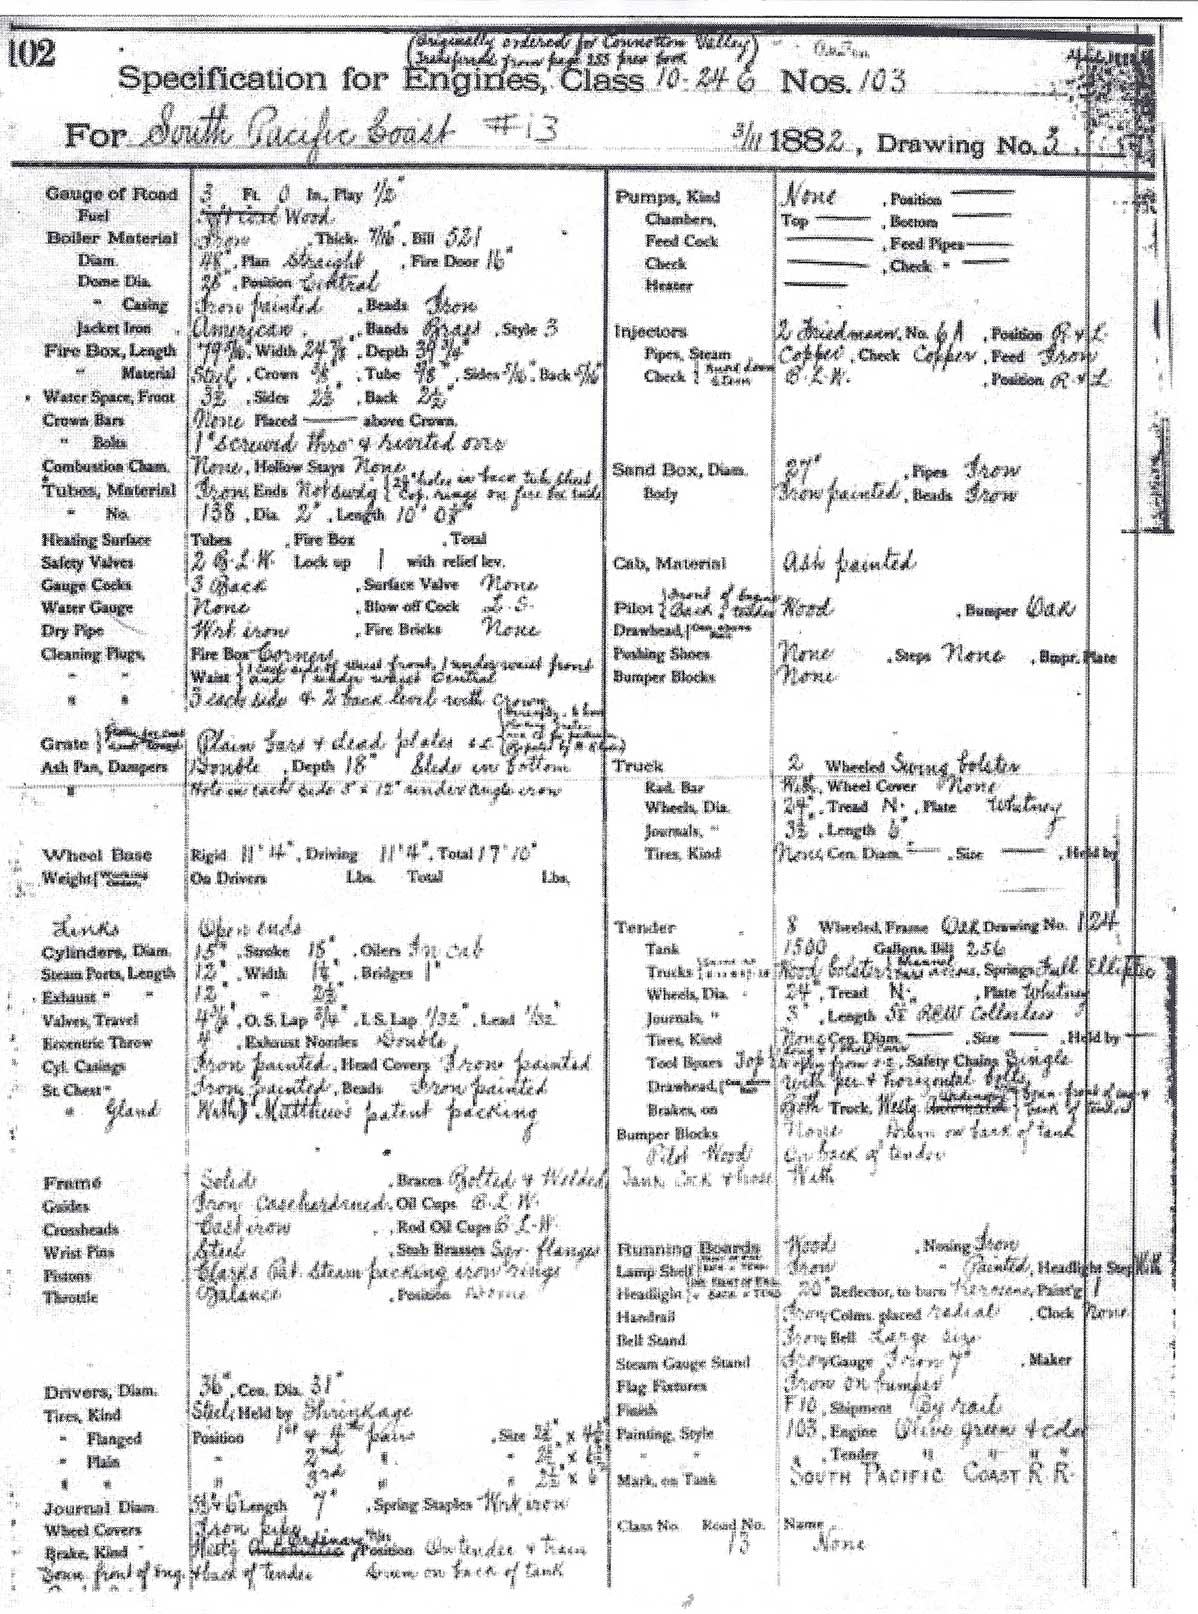 102
(Originally ordered for Connotton Valley)
(Transferred from page 255 prev book
Specification for Engines, Class 10-24 6 Nos. 103
For South Pacific Coast #13 3/11 1882, Drawing No. 3.
Gauge of Road 3 Ft. 0 In., Play 1/2"
Fuel Wood
Boiler Material Iron, Thick. 7/16", Bill 521
Diam. 48", Plan Straight, Fire Door 16"
Dome Dia. 28", Position Central
" Casing Iron painted, Beads Iron
Jacket Iron American, Bands Brass, Style 3
Fire Box, Length 79 5/16", Width 24 7/8", Depth 39 3/4"
" Material Steel, Crown 3/8", Tube 3/8", Sides 5/16", Back 5/16"
Water Space, Front 3 1/2", Sides 2 1/2", Back 2 1/2"
Crown Bars None Placed — above Crown.
" Bolts 1" screwed thro' & riveted over
Combustion Cham. None, Hollow Stays None
Tubes, Material Iron, Ends Not swdg { holes in back tube sheet Cop. rings on fire box ends
" No. 138, Dia. 2", Length 10' 0 1/8"
Heating Surface Tubes , Fire Box , Total
Safety Valves 2 B.L.W. Lock up 1 with relief lev.
Gauge Cocks 3 Back, Surface Valve None
Water Gauge None, Blow off Cock L.S.
Dry Pipe Wrt iron, Fire Bricks None
Cleaning Plugs, Fire Box Corners
" " Waist { 1 each side of waist front, 1 under waist front and 1 under waist central
" " 3 each side & 2 back level with crown
Grate Plain bars & dead plates
Ash Pan, Dampers Double, Depth 18" Slide in bottom
" Hole in each side 3" x 12" under angle iron
Wheel Base Rigid 11' 4", Driving 11' 4", Total 17' 10"
Weight { Working Order, On Drivers Lbs. Total Lbs,
Links Open ends
Cylinders, Diam. 15", Stroke 18", Oilers In cab
Steam Ports, Length 12", Width 1 1/4", Bridges 1"
Exhaust " " 12" " 2 1/2"
Valves, Travel 4 3/4", O.S. Lap 3/4", I.S. Lap 1/32", Lead 1/32"
Eccentric Throw 4", Exhaust Nozzles Double
Cyl. Casings Iron painted, Head Covers Iron painted
St. Chest " Iron painted, Beads Iron painted
" Gland With Matthews patent packing
Frame Solid, Braces Bolted & Welded
Guides Iron Casehardened, Oil Cups B.L.W.
Crossheads Cast iron, Rod Oil Cups B.L.W.
Wrist Pins Steel, Stub Brasses Sqr. flanges
Pistons Clarks Pat. Steam packing iron rings
Throttle Balance, Position Dome
Drivers, Diam. 36", Cen. Dia. 31"
Tires, Kind Steel, Held by Shrinkage
" Flanged Position 1st & 4th pairs, Size 2 1/2" x
" Plain " 2nd " " 2 1/2" x 6"
" " " 3rd " " 2 1/2" x 6"
Journal Diam. Length 7", Spring Staples Wrt iron
Wheel Covers Iron pipe
Brake, Kind Westg Automatic Ordinary, Position On tender & Train
Conn. front of Eng. & back of tender Drum on back of tank
Pumps, Kind None, Position —
Chambers, Top —, Bottom —
Feed Cock —, Feed Pipes —
Check —, Check " —
Heater —
Injectors 2 Friedmann, No. 6A, Position R & L.
Pipes, Steam Copper, Check Copper, Feed Iron
Check B.L.W., Position R & L
Sand Box, Diam. 27", Pipes Iron
Body Iron painted, Beads Iron
Cab, Material Ash painted
Pilot { Front of Engine Back of tender Wood, Bumper Oak
Drawhead,
Pushing Shoes None, Steps None, Bmpr. Plate
Bumper Blocks None
Truck 2 Wheeled Swing bolster
Rad. Bar With, Wheel Cover None
Wheels, Dia. 24", Tread N., Plate Whitney
Journals, " 3 1/2", Length 6"
Tires, Kind None, Cen. Diam. —, Size —, Held by
Tender 8 Wheeled, Frame Oak Drawing No. 124
Tank 1500 Gallons, Bill 256
Trucks Wood bolster, Springs Full Elliptic
Wheels, Dia. 24", Tread N., Plate Whitney
Journals, " 3", Length Collarless
Tires, Kind None Cen. Diam. —, Size —, Held by —
Tool Boxes Top, Safety Chains Single
Drawhead, With pin & horizontal bolts
Brakes, on Both Truck, Westg
Bumper Blocks None Drum on back of tank
Pilot Wood On back of tender
Tank Cock & hose With
Running Boards Wood, Nosing Iron
Lamp Shelf Iron " Painted, Headlight Step
Headlight 20" Reflector, to burn Kerosene, Paint'g 1
Handrail Iron Colms. placed radial, Clock None
Bell Stand Iron Bell Large size
Steam Gauge Stand Iron Gauge Iron 7", Maker
Flag Fixtures Iron on bumper
Finish F10, Shipment By rail
Painting, Style 103, Engine Olive green & color
" " , Tender " " " "
Mark, on Tank SOUTH PACIFIC COAST R.R.
Class No. Road No. Name
13 None